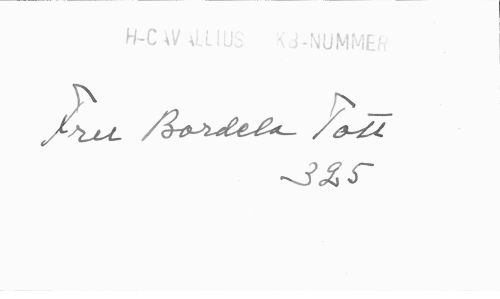 H-CAVALLIUS KB-NUMMER
Fru Bordela Tott
325